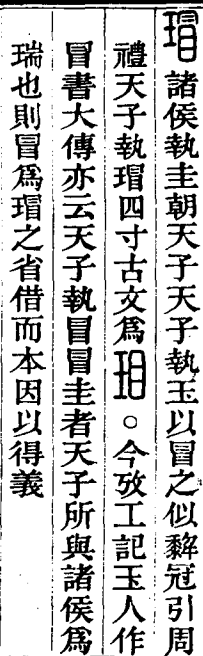 瑁諸侯執圭朝天子天子執玉以冒之似犂冠引周
禮天子執瑁四寸古文爲玥○今攷工記玉人作
冒書大傳亦云天子執冒冒圭者天子所與諸侯爲
瑞也則冒爲瑁之省借而本因以得義